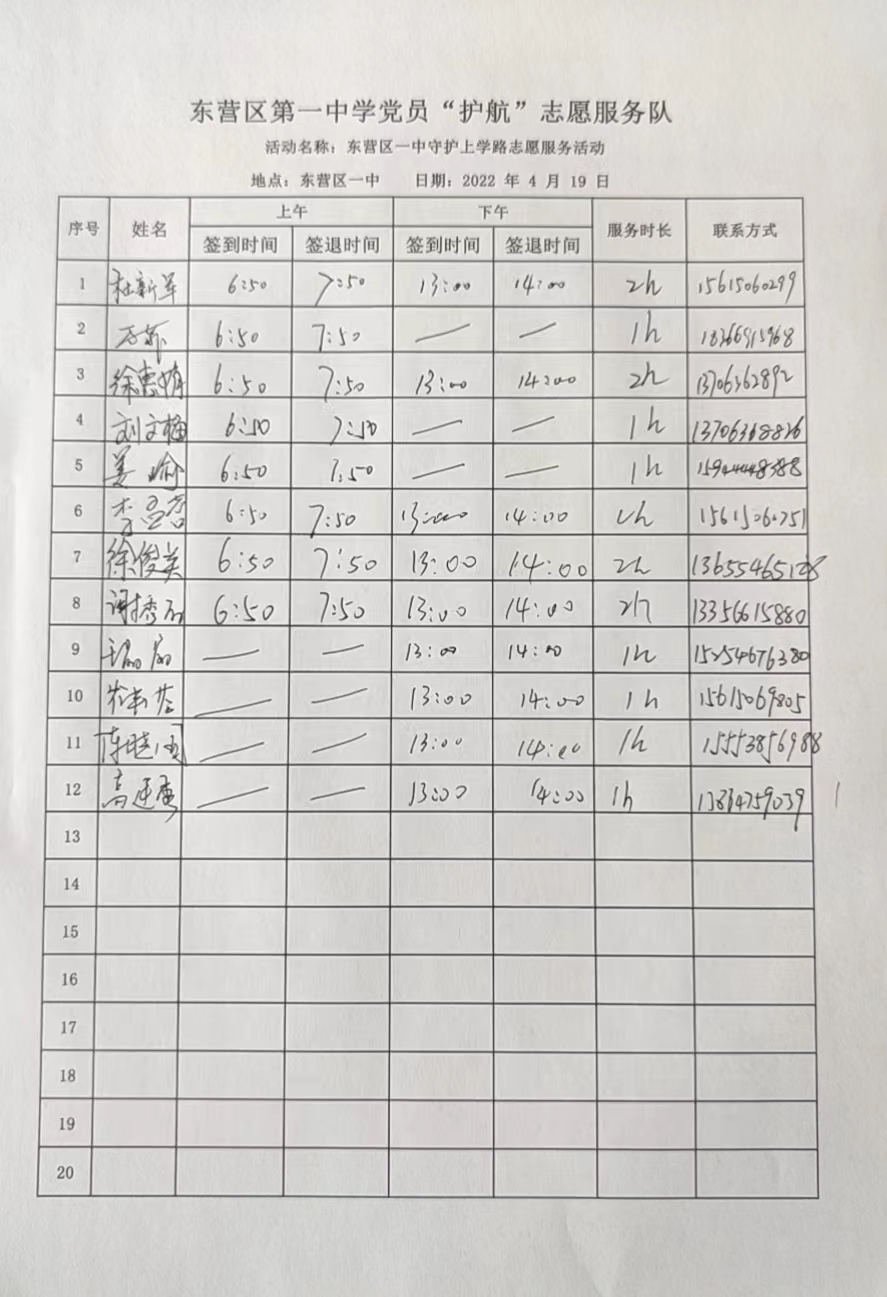 东营区第一中学党员“护航”志愿服务队
活动名称：东营区一中守护上学路志愿服务活动
地点：东营区一中 日期：2022 年 4 月 19 日
序号 姓名 上午 下午 服务时长 联系方式
签到时间 签退时间 签到时间 签退时间
1 杜新军 6:50 7:50 13:00 14:00 2h 15615060299
2 6:50 7:50 — — 1h 18366915968
3 徐惠娟 6:50 7:50 13:00 14:00 2h 13706362892
4 刘文梅 6:50 7:50 — — 1h 13706368826
5 姜喻 6:50 7:50 — — 1h
6 6:50 7:50 13:00 14:00 2h 15615060751
7 徐俊英 6:50 7:50 13:00 14:00 2h 13655465128
8 6:50 7:50 13:00 14:00 2h 13356615880
9 — — 13:00 14:00 1h 15254676380
10 — — 13:00 14:00 1h 15615069805
11 — — 13:00 14:00 1h 15553856988
12 — — 13:00 14:00 1h
13
14
15
16
17
18
19
20